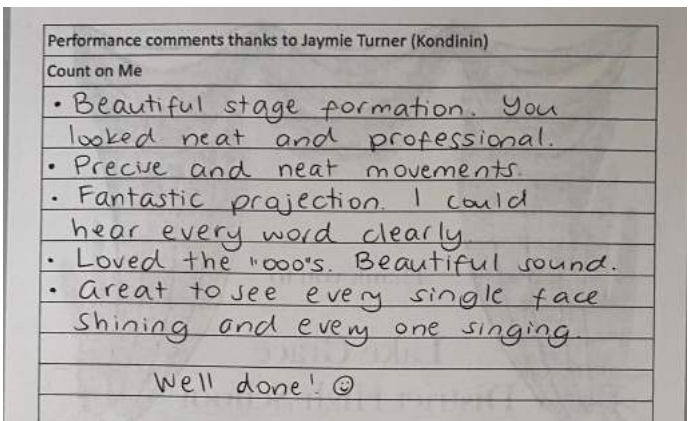 Performance comments thanks to Jaymie Turner (Kondinin)
Count on Me
• Beautiful stage formation. You
looked neat and professional.
• Precise and neat movements.
• Fantastic projection. I could
hear every word clearly.
• Loved the "ooo"s. Beautiful sound.
• Great to see every single face
shining and every one singing.
Well done! ☺